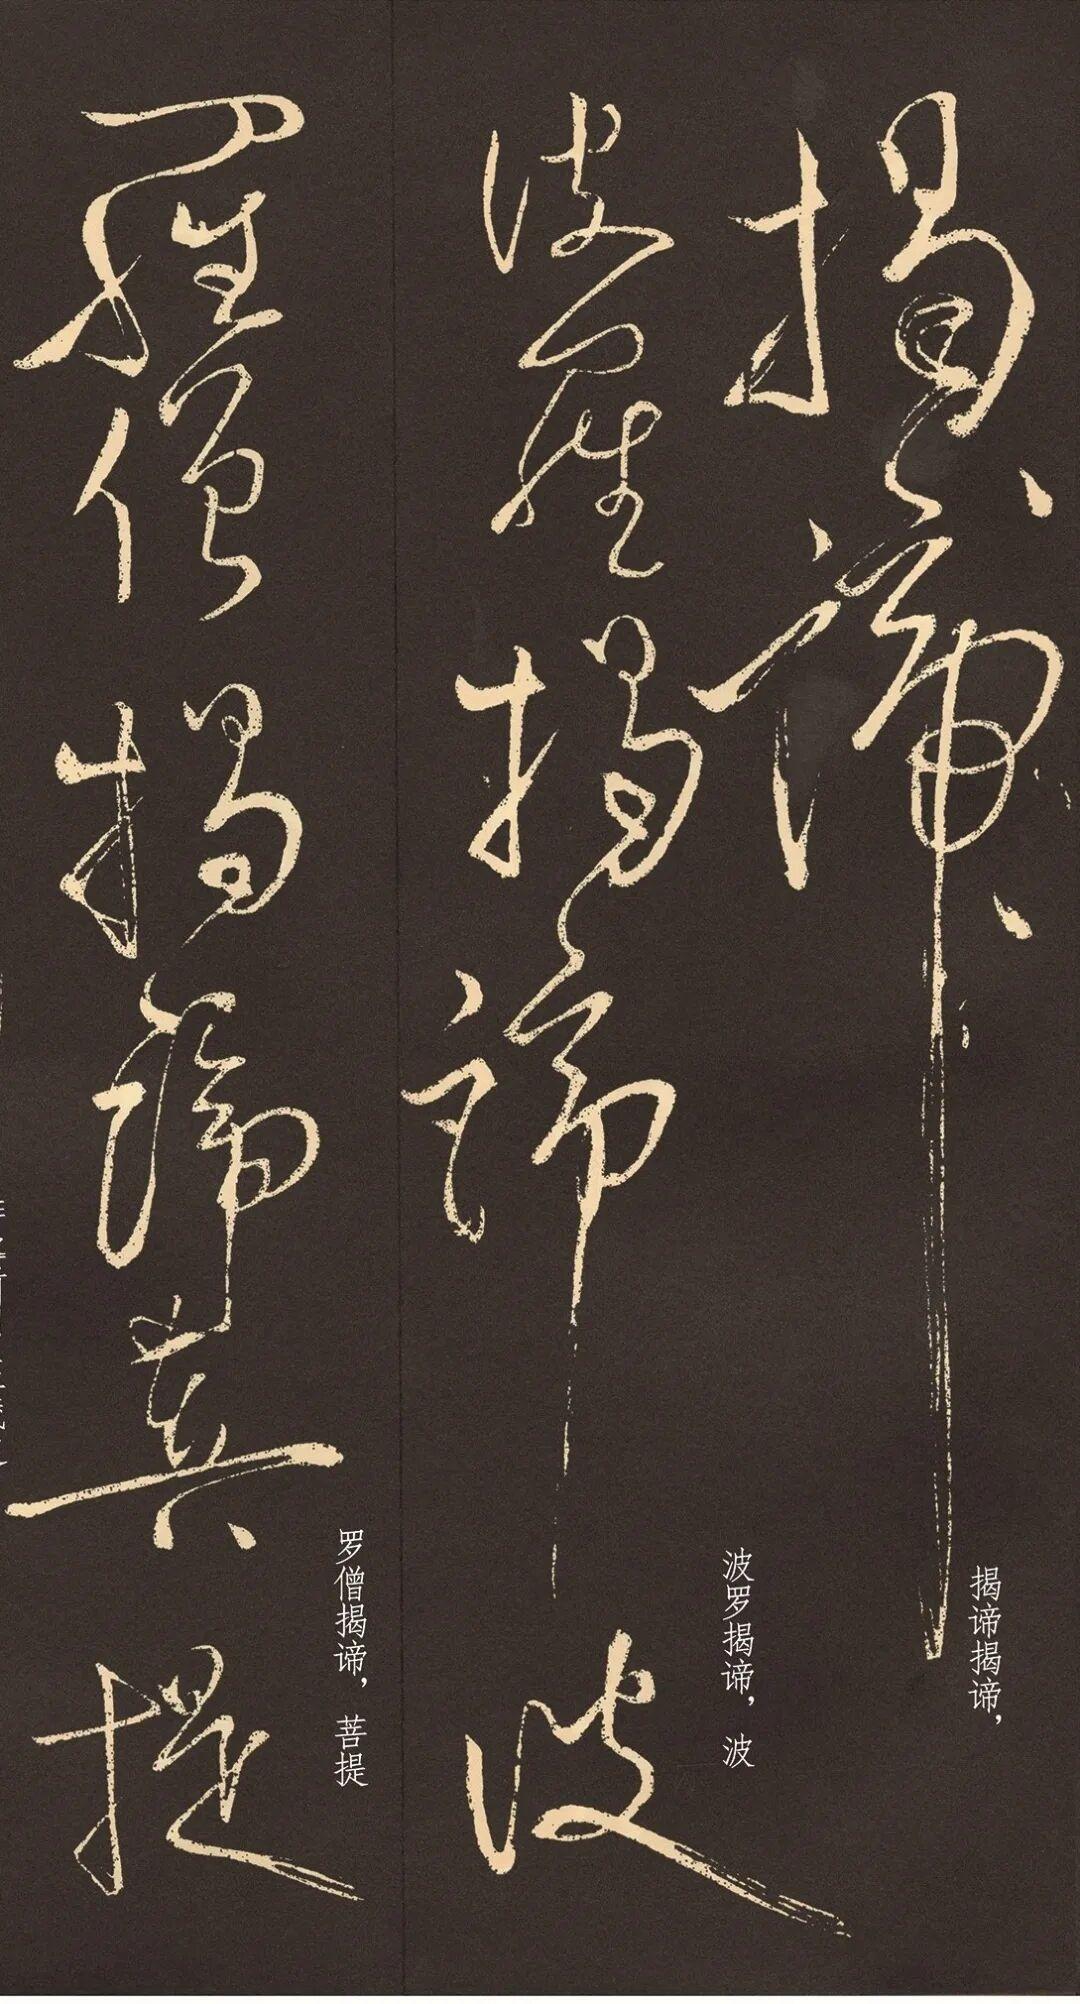 揭諦
揭谛揭谛，
波羅揭諦波
波罗揭谛，波
羅僧揭諦菩提
罗僧揭谛，菩提